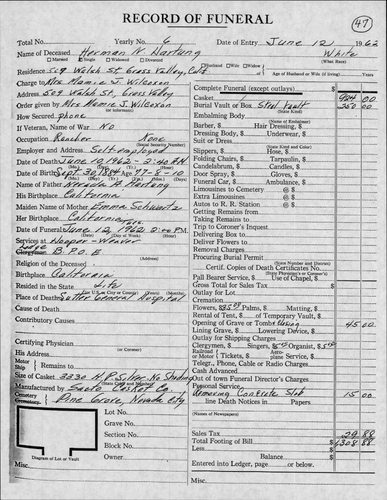 RECORD OF FUNERAL
47
Total No. Yearly No. 6 Date of Entry June 12 1962
Name of Deceased Herman N. Hartung White
(What Race)
Married Single Widowed Divorced
Residence 509 Walsh St. Grass Valley, Calif
Husband Wife Widow Age of Husband or Wife (if living) Years
Charge to Mrs Mamie J. Wilcoxon
Address 509 Walsh St. Grass Valley
Order given by Mrs Mamie J. Wilcoxon
(or informant)
How Secured phone
If Veteran, Name of War No
Occupation Rancher None
(Social Security Number)
Employer and Address Self-employed
Date of Death June 10, 1962 - 2:40 A.M.
(Mo.) (Day) (Yr.) (Hour)
Date of Birth Sept. 30, 1884 Age 77-8-10
(Mo.) (Day) (Yr.)
Name of Father
His Birthplace California
Maiden Name of Mother Emma Schwartz
Her Birthplace California
Date of Funeral June 12, 1962 2:00 P.M.
Services at Hooper-Weaver
Clergyman B.P.O.E
Religion of the Deceased
Birthplace California
Resided in the State Life
Place of Death Sutter General Hospital
Cause of Death
Contributory Causes
Certifying Physician
His Address
Motor Ship Remains to
Size of Casket 3330 N.P. Silver No Shading
(State Color and Number)
Manufactured by Casket Co.
Cemetery Pine Grove, Nevada City
Lot No.
Grave No.
Section No.
Block No.
Owner
Diagram of Lot or Vault
Misc.
Complete Funeral (except outlays)
Casket 924 00
Burial Vault or Box Steel Vault 350 00
Embalming Body
(Name of Embalmer)
Barber, $ Hair Dressing, $
Dressing Body, $ Underwear, $
Suit or Dress
(State Kind and Color)
Slippers, $ Hose, $
Folding Chairs, $ Tarpaulin, $
Candelabrum, $ Candles, $
Door Spray, $ Gloves, $
Funeral Car, $ Ambulance, $
Limousines to Cemetery @ $
Extra Limousines @ $
Autos to R. R. Station @ $
Getting Remains from
Taking Remains to
Trip to Coroner's Inquest
Delivering Box to
Deliver Flowers to
Removal Charges
Procuring Burial Permit
(State Number and District)
Certif. Copies of Death Certificates No.
(State Physician's or Coroner's)
Pall Bearer Service, $ Use of Chapel, $
Gross Total for Sales Tax $
Outlay for Lot
Cremation
Flowers, $ Palms, $ Matting, $
Rental of Tent, $ of Temporary Vault, $
Opening of Grave or Tomb 45 00
Lining Grave, $ Lowering Device, $
Outlay for Shipping Charges
Clergymen, $ Singers, $ Organist, $
Railroad or Motor Tickets, $ Aeroplane Service, $
Teleg., Phone, Cable or Radio Charges
Cash Advanced
Out of town Funeral Director's Charges
Personal Service
Removing Concrete Slab 15 00
line Death Notices in Papers
(Names of Newspapers)
Sales Tax 29 88
Total Footing of Bill $
Less
Balance $
Entered into Ledger, page or below.
Misc.